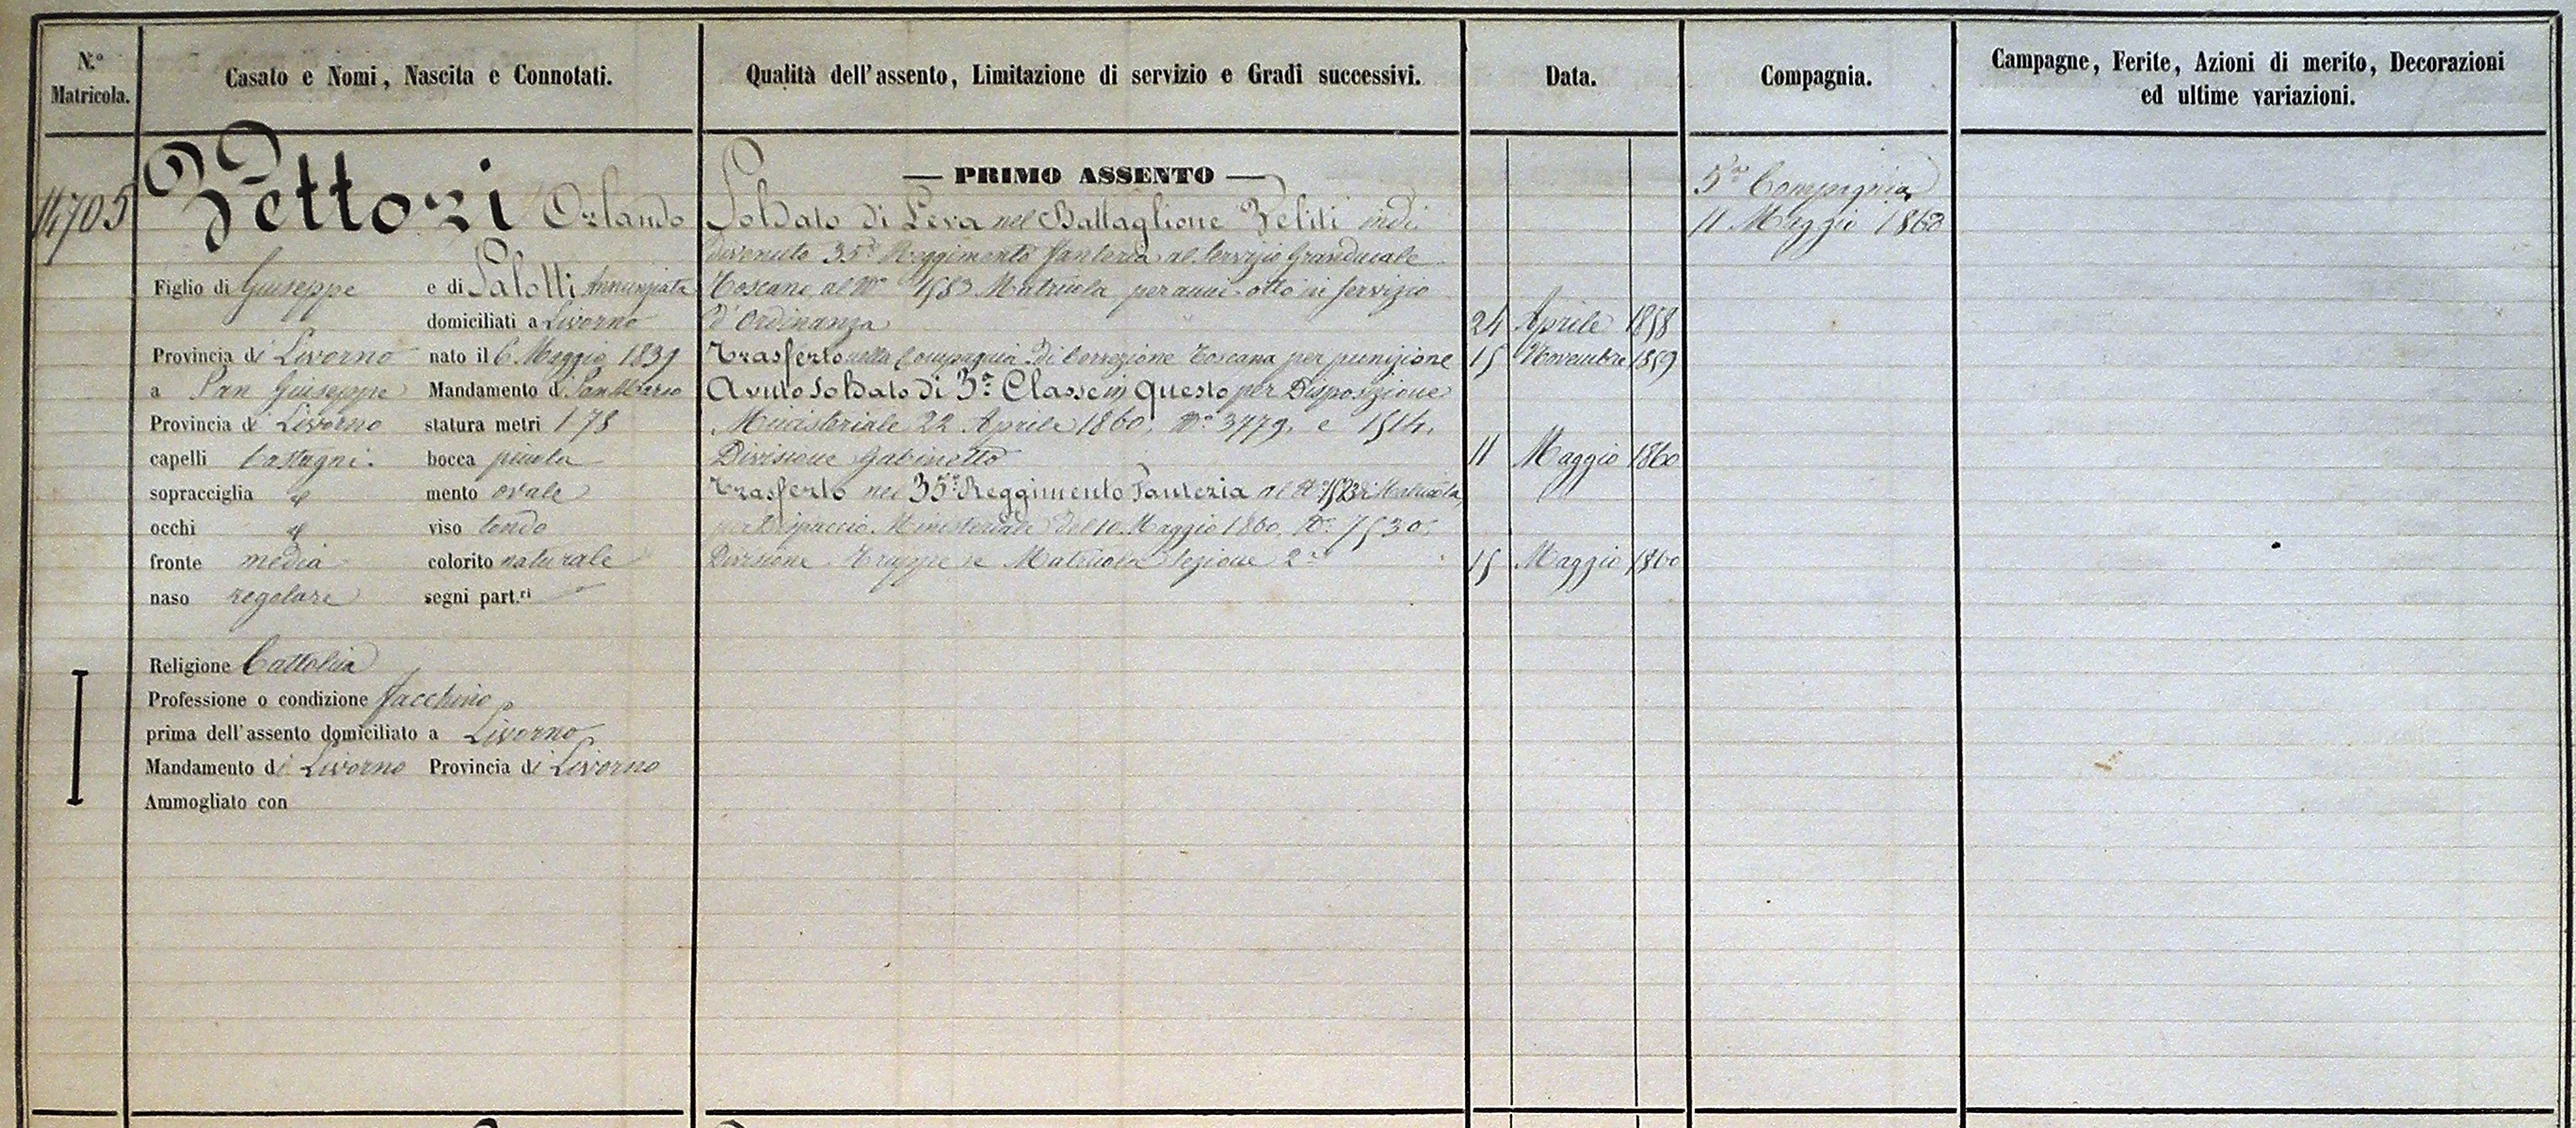 N.º Matricola.
Casato e Nomi, Nascita e Connotati.
Qualità dell'assento, Limitazione di servizio e Gradi successivi.
Data.
Compagnia.
Campagne, Ferite, Azioni di merito, Decorazioni
ed ultime variazioni.
14705
Vettori Orlando
Figlio di Giuseppe e di Salotti Annunziata
domiciliati a Livorno
Provincia di Livorno nato il 6 Maggio 1839
a San Giuseppe Mandamento di San Marco
Provincia di Livorno statura metri 1 78
capelli Castagni. bocca piccola
sopracciglia mento ovale
occhi viso tondo
fronte media colorito naturale
naso regolare segni part.ri
Religione Cattolica
Professione o condizione facchino
prima dell'assento domiciliato a Livorno
Mandamento di Livorno Provincia di Livorno
Ammogliato con
— PRIMO ASSENTO —
Soldato di Leva nel Battaglione Veliti indi
divenuto 35º Reggimento fanteria al Servizio Granducale
Toscano al Nº 1583 Matricola per anni otto in servizio
d'Ordinanza 24 Aprile 1858
Trasferto nella Compagnia di Correzione Toscana per punizione 15 Novembre 1859
Avuto Soldato di 3ª Classe in questo per Disposizione
Ministeriale 22 Aprile 1860, Nº 3779, e 1514,
Divisione Gabinetto 11 Maggio 1860
Trasferto nel 35º Reggimento Fanteria al Nº di Matricola,
per Dispaccio Ministeriale del 10 Maggio 1860, Nº 7530,
Divisione Truppe e Matricola Sezione 2ª 15 Maggio 1860
5ª Compagnia
11 Maggio 1860